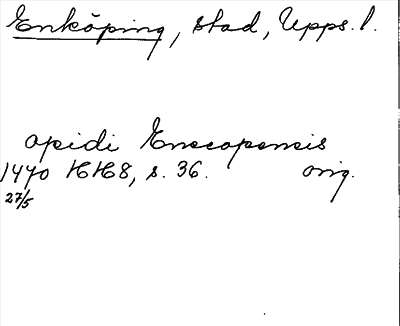 Enköping, stad, Upps. l.
opidi Enecopensis
1470 HH8, s. 36. orig.
27/5